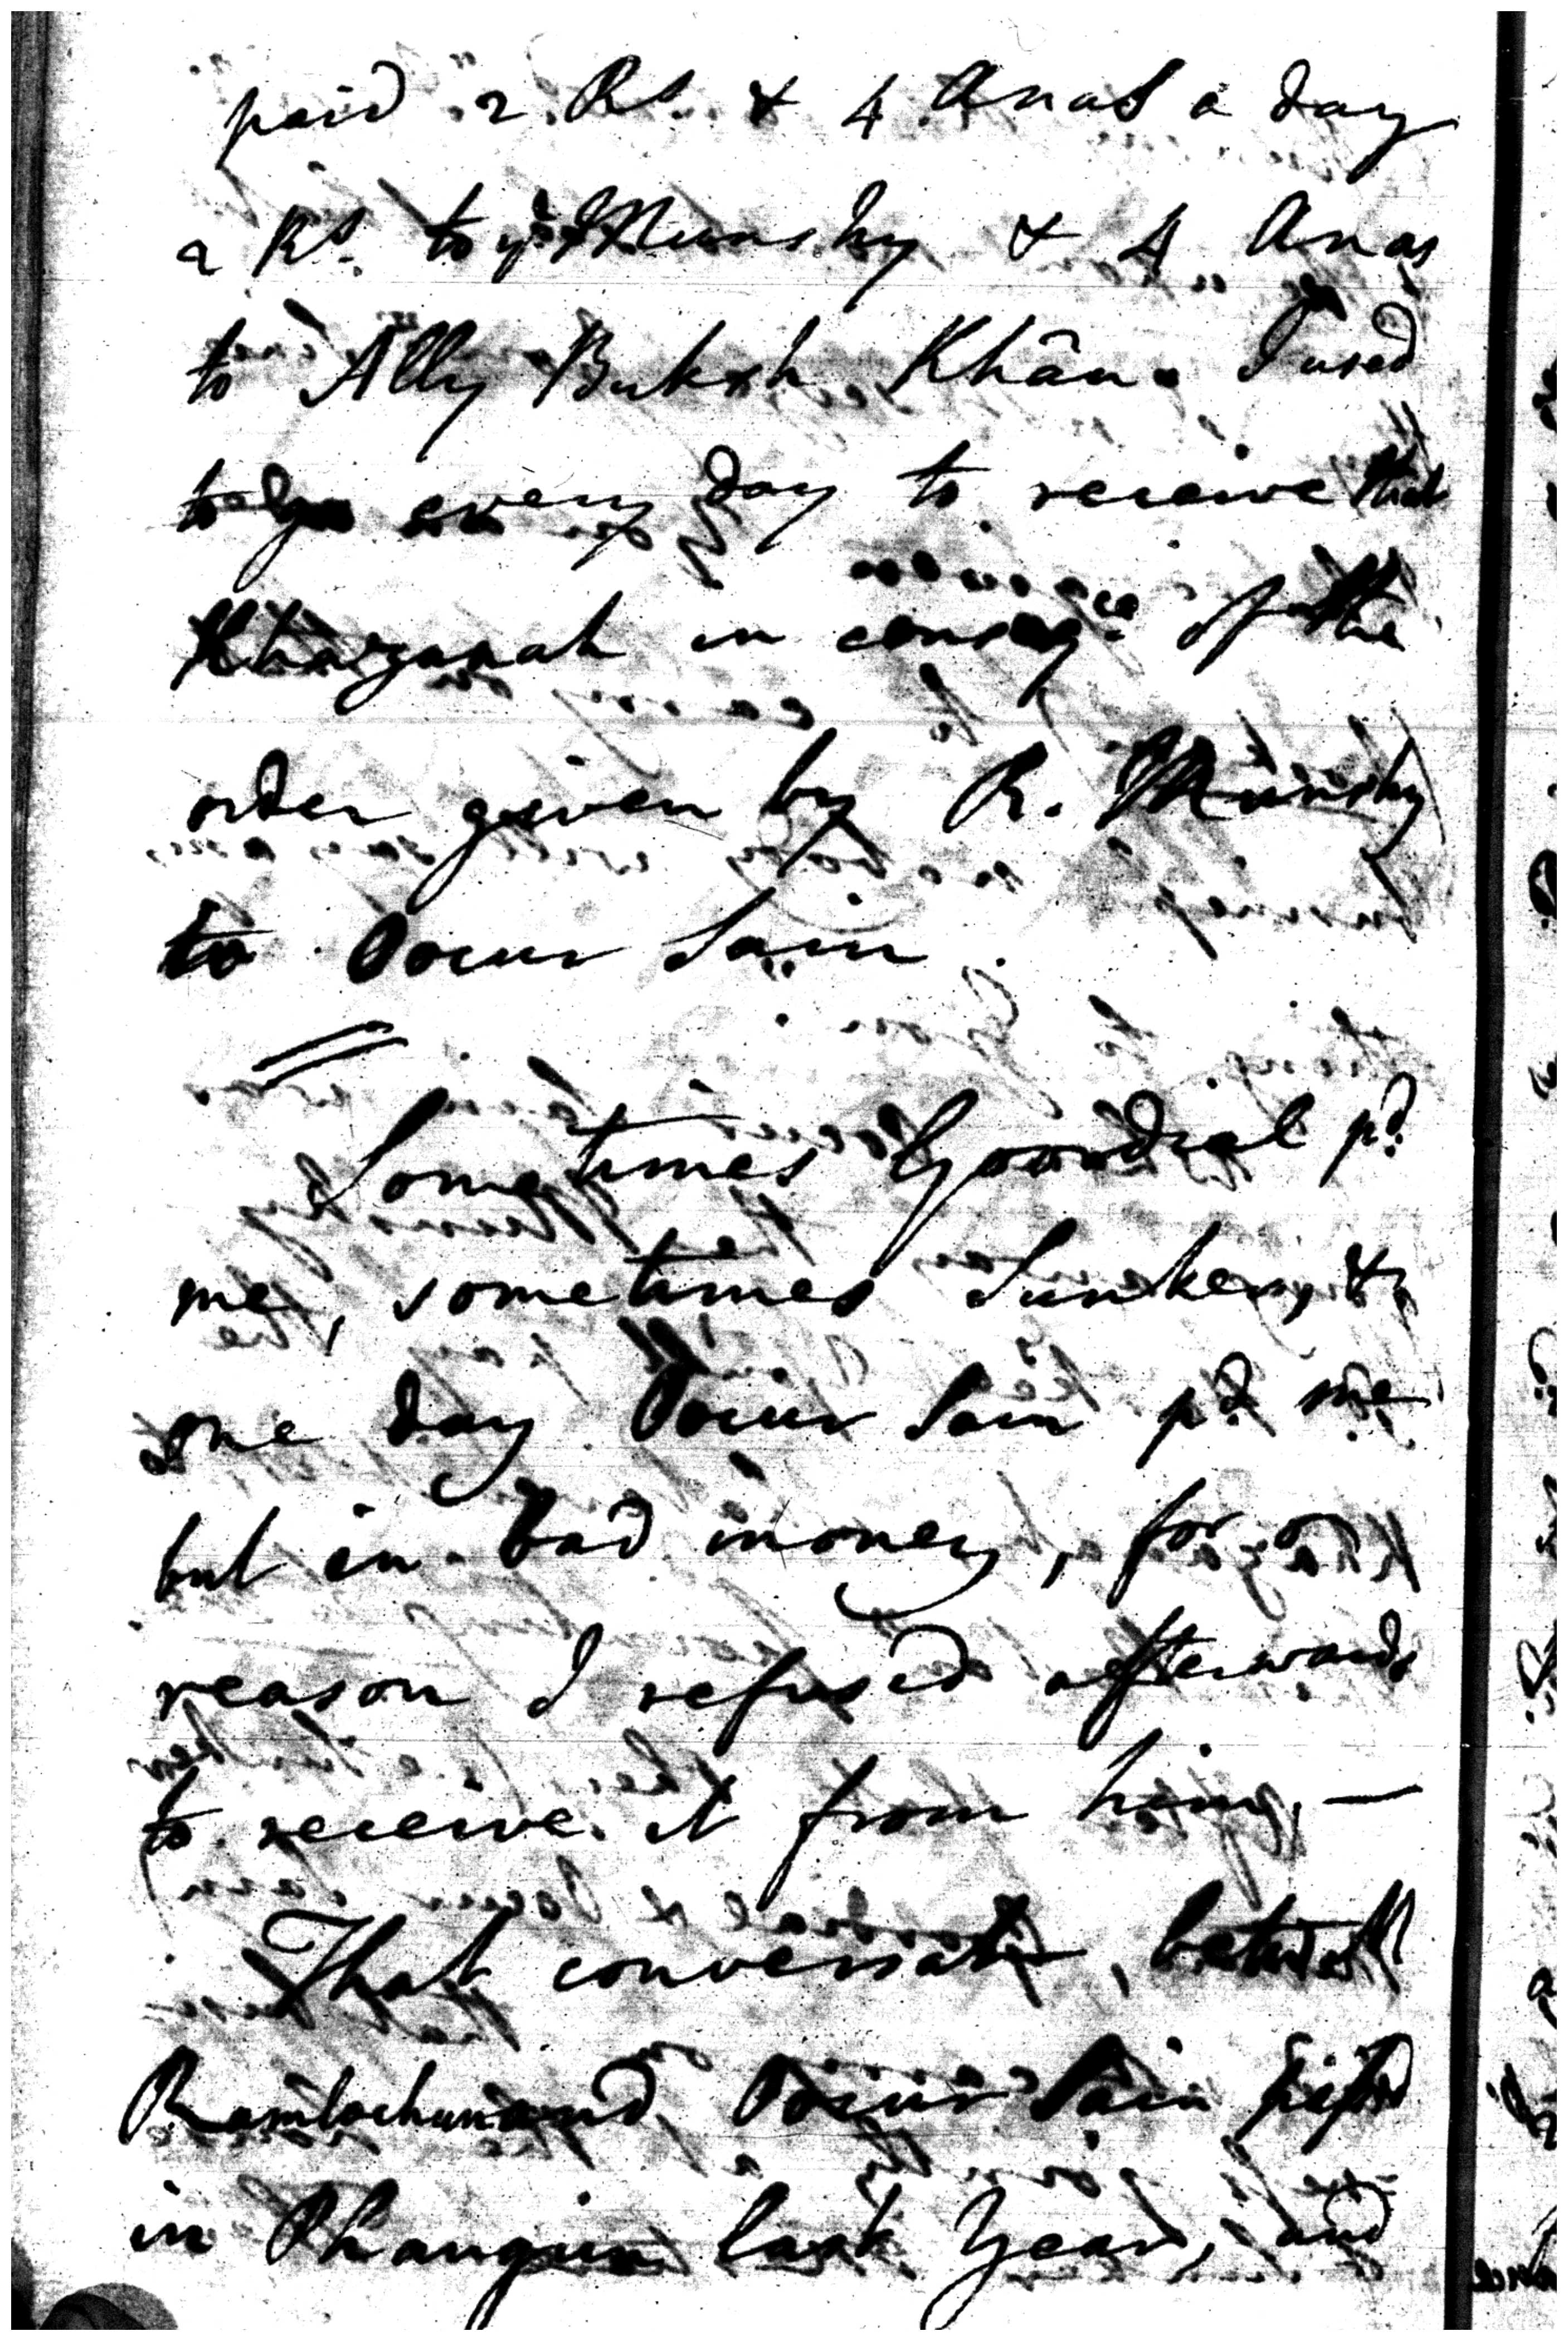 paid 2 Rs. & 4 Anas a day
2 Rs. to ye Munshy & 4 Anas
to Ally Buksh Khân. I used
to go every day to receive that
Khazanah in conseqce of the
order given by R. Munshy
to Doeur Sain.
Sometimes Goordial pd.
me, sometimes Sunker, &
one day Doeur Sain pd. me
but in bad money, for
reason I refused afterwards
to receive it from him, —
That conversatn, betwn
Ramlochun and Doeur Sain
in Phaugun last Year, and